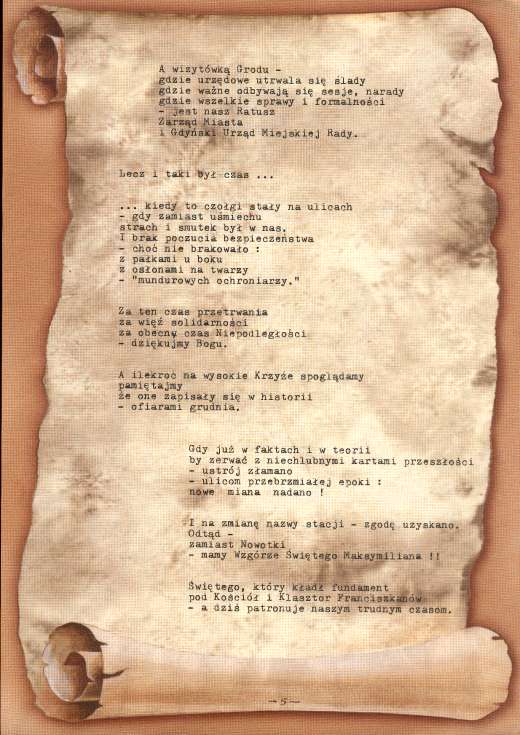 A wizytówką Grodu -
gdzie urzędowe utrwala się ślady
gdzie ważne odbywają się sesje, narady
gdzie wszelkie sprawy i formalności
- jest nasz Ratusz
Zarząd Miasta
i Gdyński Urząd Miejskiej Rady.
Lecz i taki był czas ...
... kiedy to czołgi stały na ulicach
- gdy zamiast uśmiechu
strach i smutek był w nas.
I brak poczucia bezpieczeństwa
- choć nie brakowało :
z pałkami u boku
z osłonami na twarzy
- "mundurowych ochroniarzy."
Za ten czas przetrwania
za więź solidarności
za obecny czas Niepodległości
- dziękujmy Bogu.
A ilekroć na wysokie Krzyże spoglądamy
pamiętajmy
że one zapisały się w historii
- ofiarami grudnia.
Gdy już w faktach i w teorii
by zerwać z niechlubnymi kartami przeszłości
- ustrój złamano
- ulicom przebrzmiałej epoki :
nowe miana nadano !
I na zmianę nazwy stacji - zgodę uzyskano.
Odtąd -
zamiast Nowotki
- mamy Wzgórze Świętego Maksymiliana !!
Świętego, który kładł fundament
pod Kościół i Klasztor Franciszkanów
- a dziś patronuje naszym trudnym czasom.
- 5 -